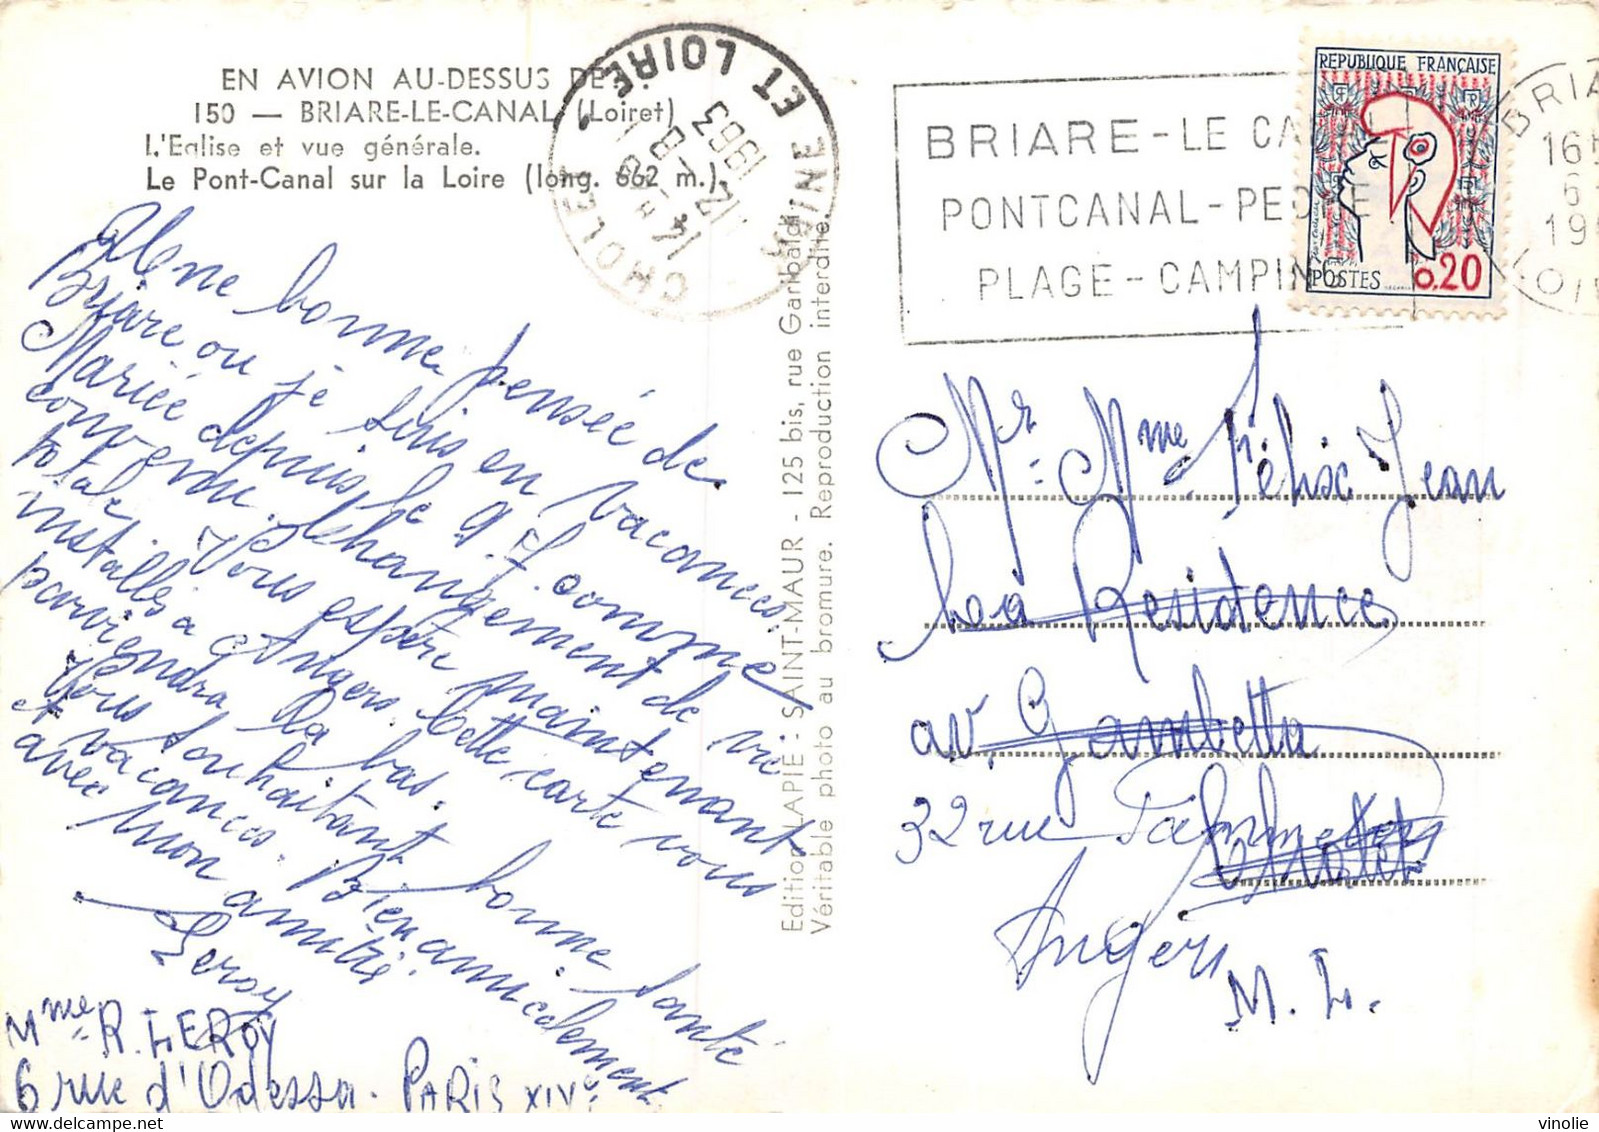 EN AVION AU-DESSUS DE
150 — BRIARE-LE-CANAL (Loiret)
L'Eglise et vue générale.
Le Pont-Canal sur la Loire (long. 662 m.)
CHOLET
MAINE ET LOIRE
1963
Une bonne pensée de
Briare ou je suis en vacances.
Mariée depuis le 9.
comme
convenu. Changement de vie
totale. Vous espère maintenant
installés a Angers. Cette carte vous
parviendra la bas.
Vous souhaitant bonne santé
et vacances. Bien amicalement
avec mon amitié.
Leroy
Mme R. LEROY
6 rue d'Odessa. PARIS XIVe
Edition LAPIE - SAINT-MAUR - 125 bis, rue Garibaldi
Véritable photo au bromure. Reproduction interdite.
BRIARE - LE CA
PONTCANAL - PECHE
PLAGE - CAMPING
REPUBLIQUE FRANÇAISE
POSTES 0,20
BRIA
16
6
19
LOI
Mr. Mme Félix Jean
La Residence
av. Gambetta
32 rue
Cholet
Angers
M. L.
vinolie